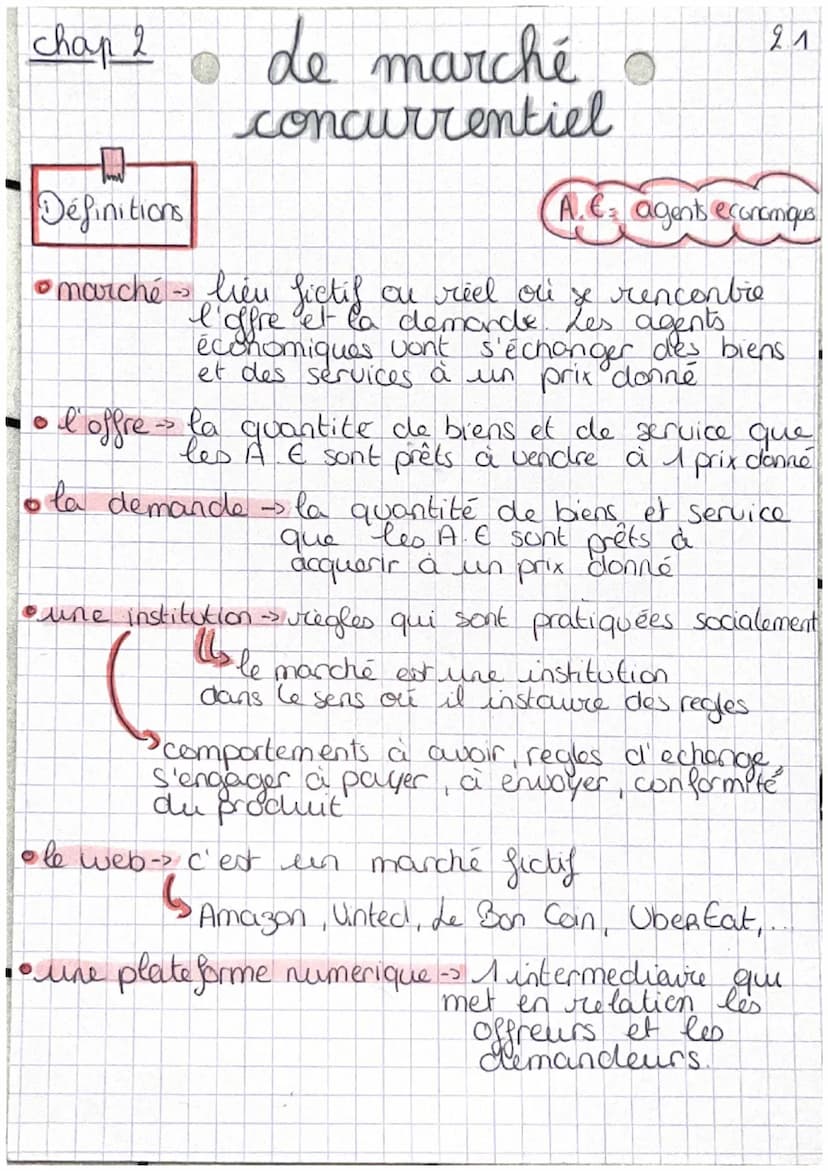 chap 2
2 1
Le marché
concurrentiel
Définitions
A.E= agents economiques
marché -> lieu fictif ou réel où se rencontre
l'offre et la demande. Les agents
économiques vont s'échanger des biens
et des services à un prix donné
l'offre -> la quantité de biens et de service que
les A.E sont prêts à vendre à 1 prix donné
la demande -> la quantité de biens et service
que les A.E sont prêts à
acquerir à un prix donné
une institution -> règles qui sont pratiquées socialement
le marché est une institution
dans le sens où il instaure des regles
comportements à avoir, regles d'echange,
s'engager à payer, à envoyer, conformité
du produit
le web -> c'est un marché fictif
Amazon, Vinted, Le Bon Coin, UberEat,...
une plateforme numerique -> 1 intermediaire qui
met en relation les
offreurs et les
demandeurs.